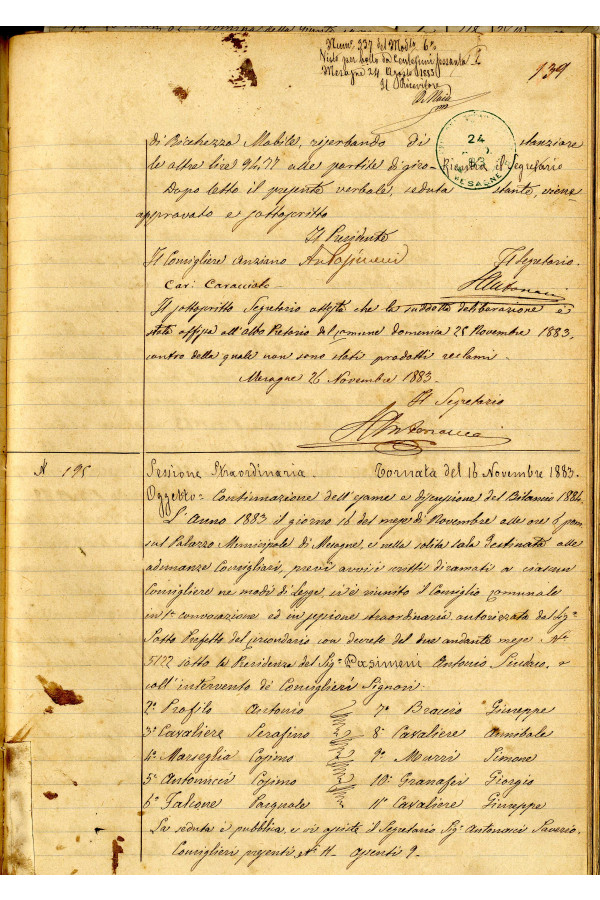 Num. 337 del Mod. 6°
Visto per bollo da Centesimi sessanta
Mesagne 24 Agosto 1883
Il Ricevitore
139
24
83
MESAGNE
di Ricchezza Mobile, riserbando di stanziare
le altre lire 94,77 alle partite di giro - Il Segretario
Dopo letto il presente verbale, seduta stante, viene
approvato e sottoscritto
Il Presidente
Il Consigliere Anziano A. Pasimeni Il Segretario
Car: Caracciolo - S. Antonaci
Il sottoscritto Segretario attesta che la suddetta deliberazione è
stata affissa all'albo Pretorio del comune domenica 25 Novembre 1883,
contro della quale non sono stati prodotti reclami.
Mesagne 26 Novembre 1883.
Il Segretario
S. Antonacci
N° 195 Sessione Straordinaria. Tornata del 16 Novembre 1883.
Oggetto = Continuazione dell'esame e discussione del Bilancio 1884.
L'Anno 1883 il giorno 16 del mese di Novembre alle ore 6 pom
sul Palazzo Municipale di Mesagne, e nella solita sala destinata alle
adunanze Consigliari, previi avvisi scritti diramati a ciascun
Consigliere ne' modi di Legge, si è riunito il Consiglio comunale
in 1ª convocazione ed in sessione straordinaria autorizzata dal Sigr
Sotto Prefetto del circondario con decreto del due andante mese N°
5122 sotto la Presidenza del Sigr Pasimeni Antonio Sindaco, e
coll'intervento di Consiglieri Signori:
2° Profilo Antonio 7° Braccio Giuseppe
3° Cavaliere Serafino 8° Cavaliere Annibale
4° Marseglia Cosimo 9° Murri Simone
5° Antonucci Cosimo 10° Granafei Giorgio
6° Falcone Pasquale 11° Cavaliere Giuseppe
La seduta è pubblica, e vi assiste il Segretario Sigr Antonaci Saverio.
Consiglieri presenti N° 11 - assenti 9 -